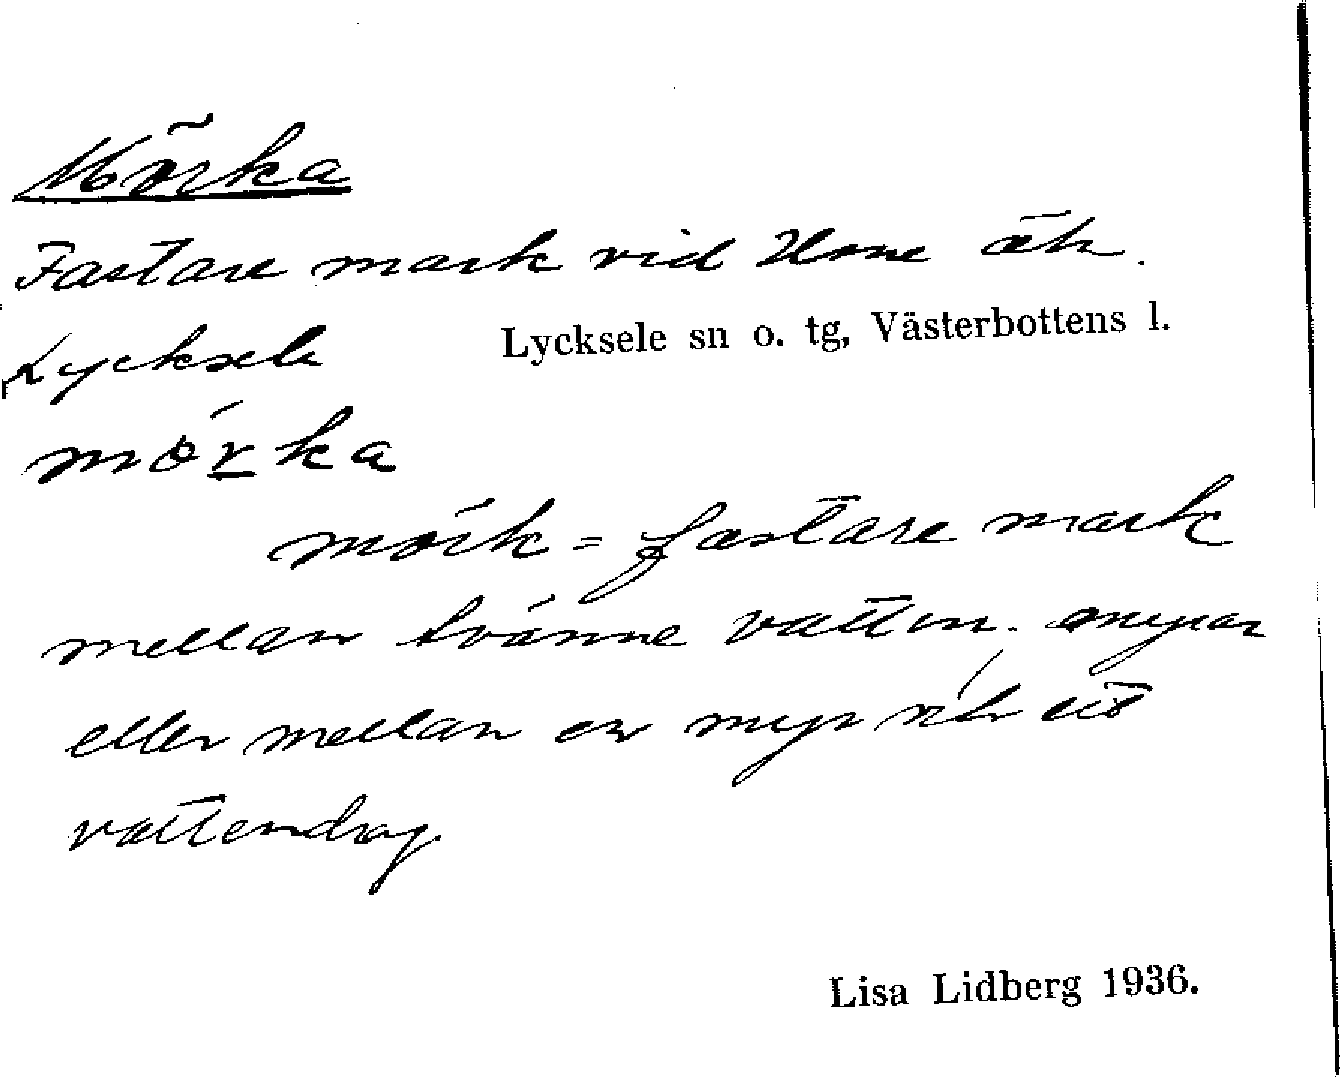 Mörka
Fastare mark vid Ume älv.
Lycksele sn o. tg, Västerbottens l.
Lycksele
mörka
mörk = fastare mark
mellan tvänne vatten. myrar
eller mellan en myr och ett
vattendrag.
Lisa Lidberg 1936.